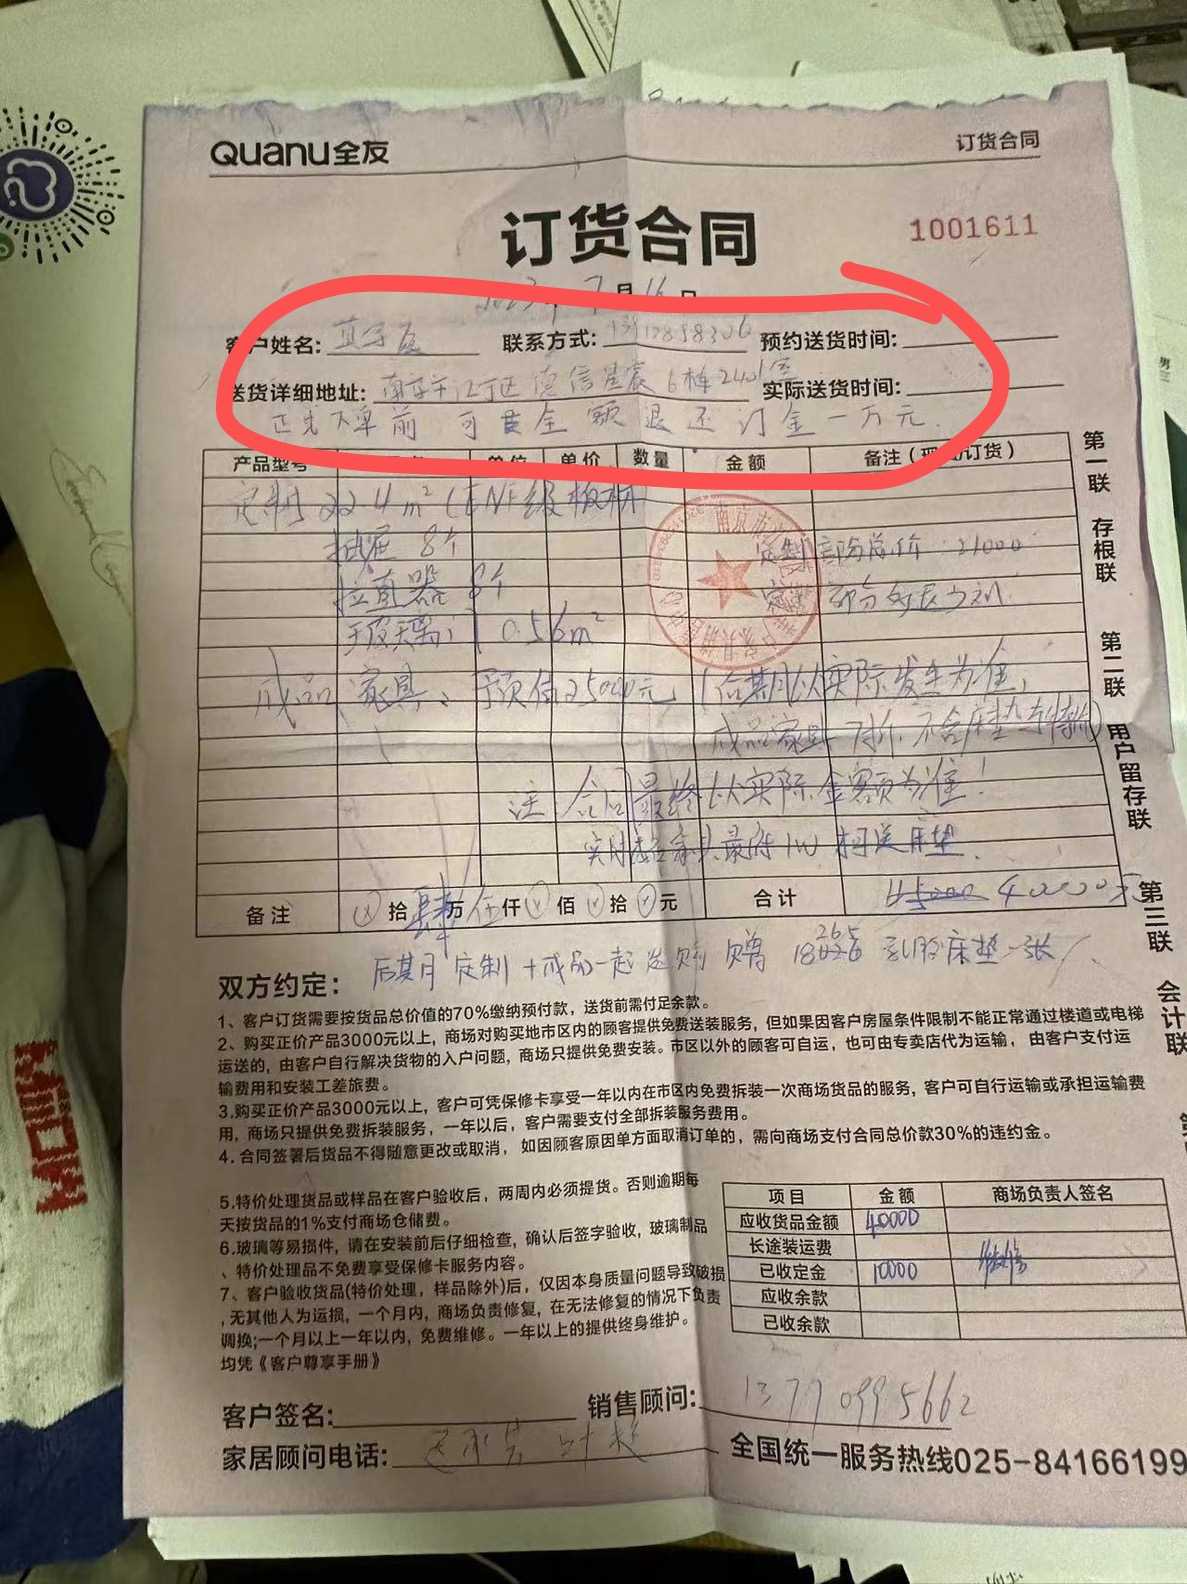 Quanu全友 订货合同
订货合同
1001611
2023年7月16日
客户姓名: 联系方式: 预约送货时间:
送货详细地址: 南京市江宁区德信星宸6栋2401室 实际送货时间:
正式下单前 可 全额退还订金一万元.
产品型号 单位 单价 数量 金额 备注(现货/订货)
定制 22.4m²(ENF级板材
抽屉 8个 定制部分总价:21000
拉直器 8个
0.56m²
成品家具、预估25000元(后期以实际发生为准,
成品家具 不含床垫与特价)
注 合同最终以实际金额为准!
备注 拾肆万伍仟 佰 拾 元 合计 45000 40000元
后期定制+成品一起 赠 床垫一张
双方约定:
1、客户订货需要按货品总价值的70%缴纳预付款,送货前需付足余款。
2、购买正价产品3000元以上,商场对购买地市区内的顾客提供免费送装服务,但如果因客户房屋条件限制不能正常通过楼道或电梯
运送的,由客户自行解决货物的入户问题,商场只提供免费安装。市区以外的顾客可自运,也可由专卖店代为运输,由客户支付运
输费用和安装工差旅费。
3.购买正价产品3000元以上,客户可凭保修卡享受一年以内在市区内免费拆装一次商场货品的服务,客户可自行运输或承担运输费
用,商场只提供免费拆装服务,一年以后,客户需要支付全部拆装服务费用。
4.合同签署后货品不得随意更改或取消,如因顾客原因单方面取消订单的,需向商场支付合同总价款30%的违约金。
5.特价处理货品或样品在客户验收后,两周内必须提货。否则逾期每
天按货品的1%支付商场仓储费。
6.玻璃等易损件,请在安装前后仔细检查,确认后签字验收,玻璃制品
、特价处理品不免费享受保修卡服务内容。
7、客户验收货品(特价处理,样品除外)后,仅因本身质量问题导致破损
,无其他人为运损,一个月内,商场负责修复,在无法修复的情况下负责
调换;一个月以上一年以内,免费维修。一年以上的提供终身维护。
均凭《客户尊享手册》
项目 金额 商场负责人签名
应收货品金额 40000
长途装运费
已收定金 10000
应收余款
已收余款
客户签名: 销售顾问: 13770995662
家居顾问电话: 全国统一服务热线025-84166199
第一联 存根联
第二联 用户留存联
第三联 会计联
MDM